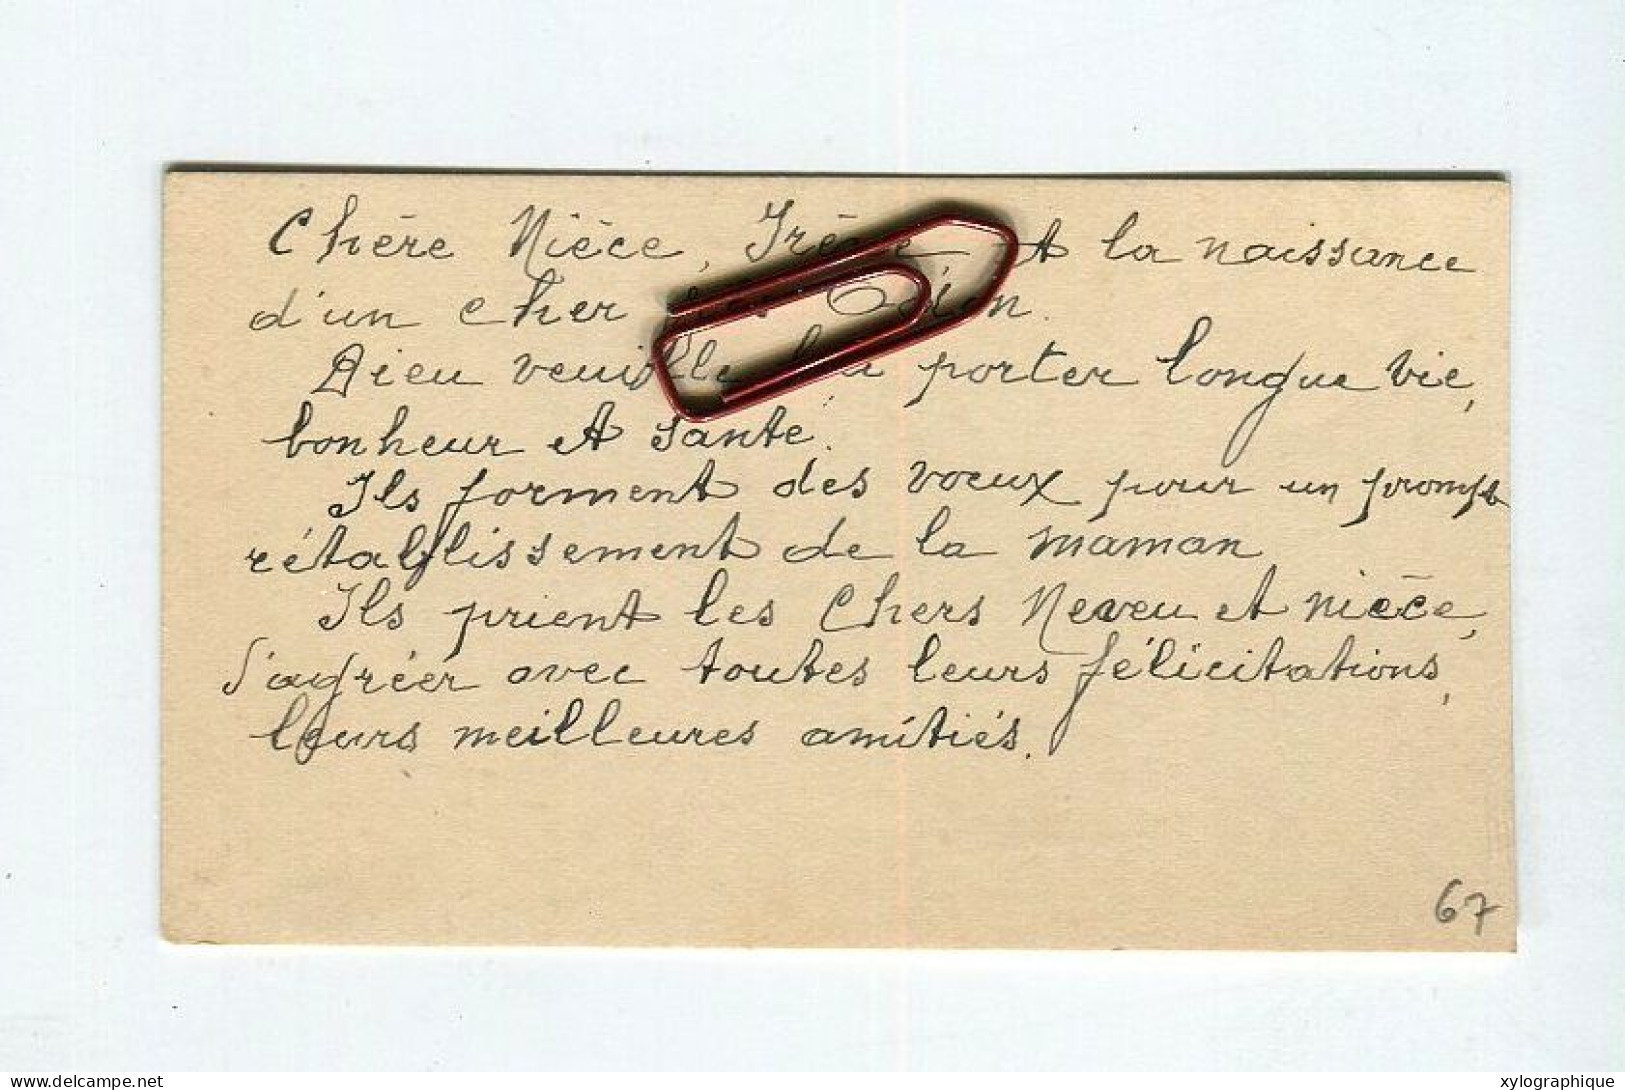 Chère Nièce, Irène et la naissance
d'un cher
Dieu veuille lui porter longue vie,
bonheur et santé.
Ils forment des voeux pour un prompt
rétablissement de la maman
Ils prient les Chers Neveu et nièce,
d'agréer avec toutes leurs félicitations,
leurs meilleures amitiés.
67
xylographique